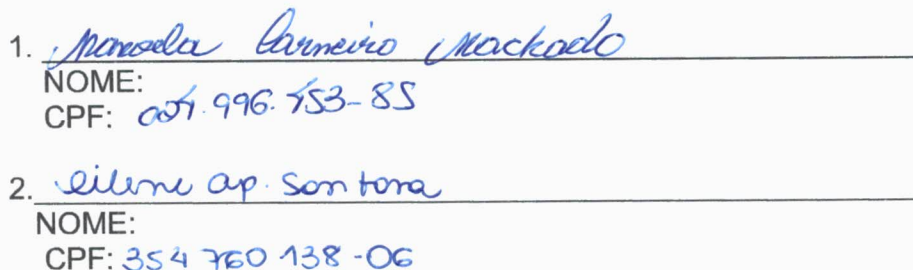 1. Manoela Carneiro Machado
NOME:
CPF: 007.996.753-85
2. Eilene ap. Santana
NOME:
CPF: 354 760 138-06